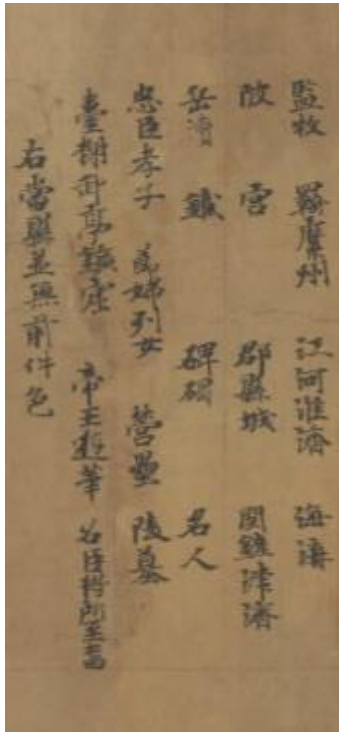 監牧 羈縻州 江河淮濟 海溝
陂 宮 郡縣城 關鏟津濟
岳瀆 鐵 碑碣 名人
忠臣孝子 節婦列女 營壘 陵墓
臺榭郵亭鑛窟 帝王遊幸 名臣將所至
右當縣並無前件色